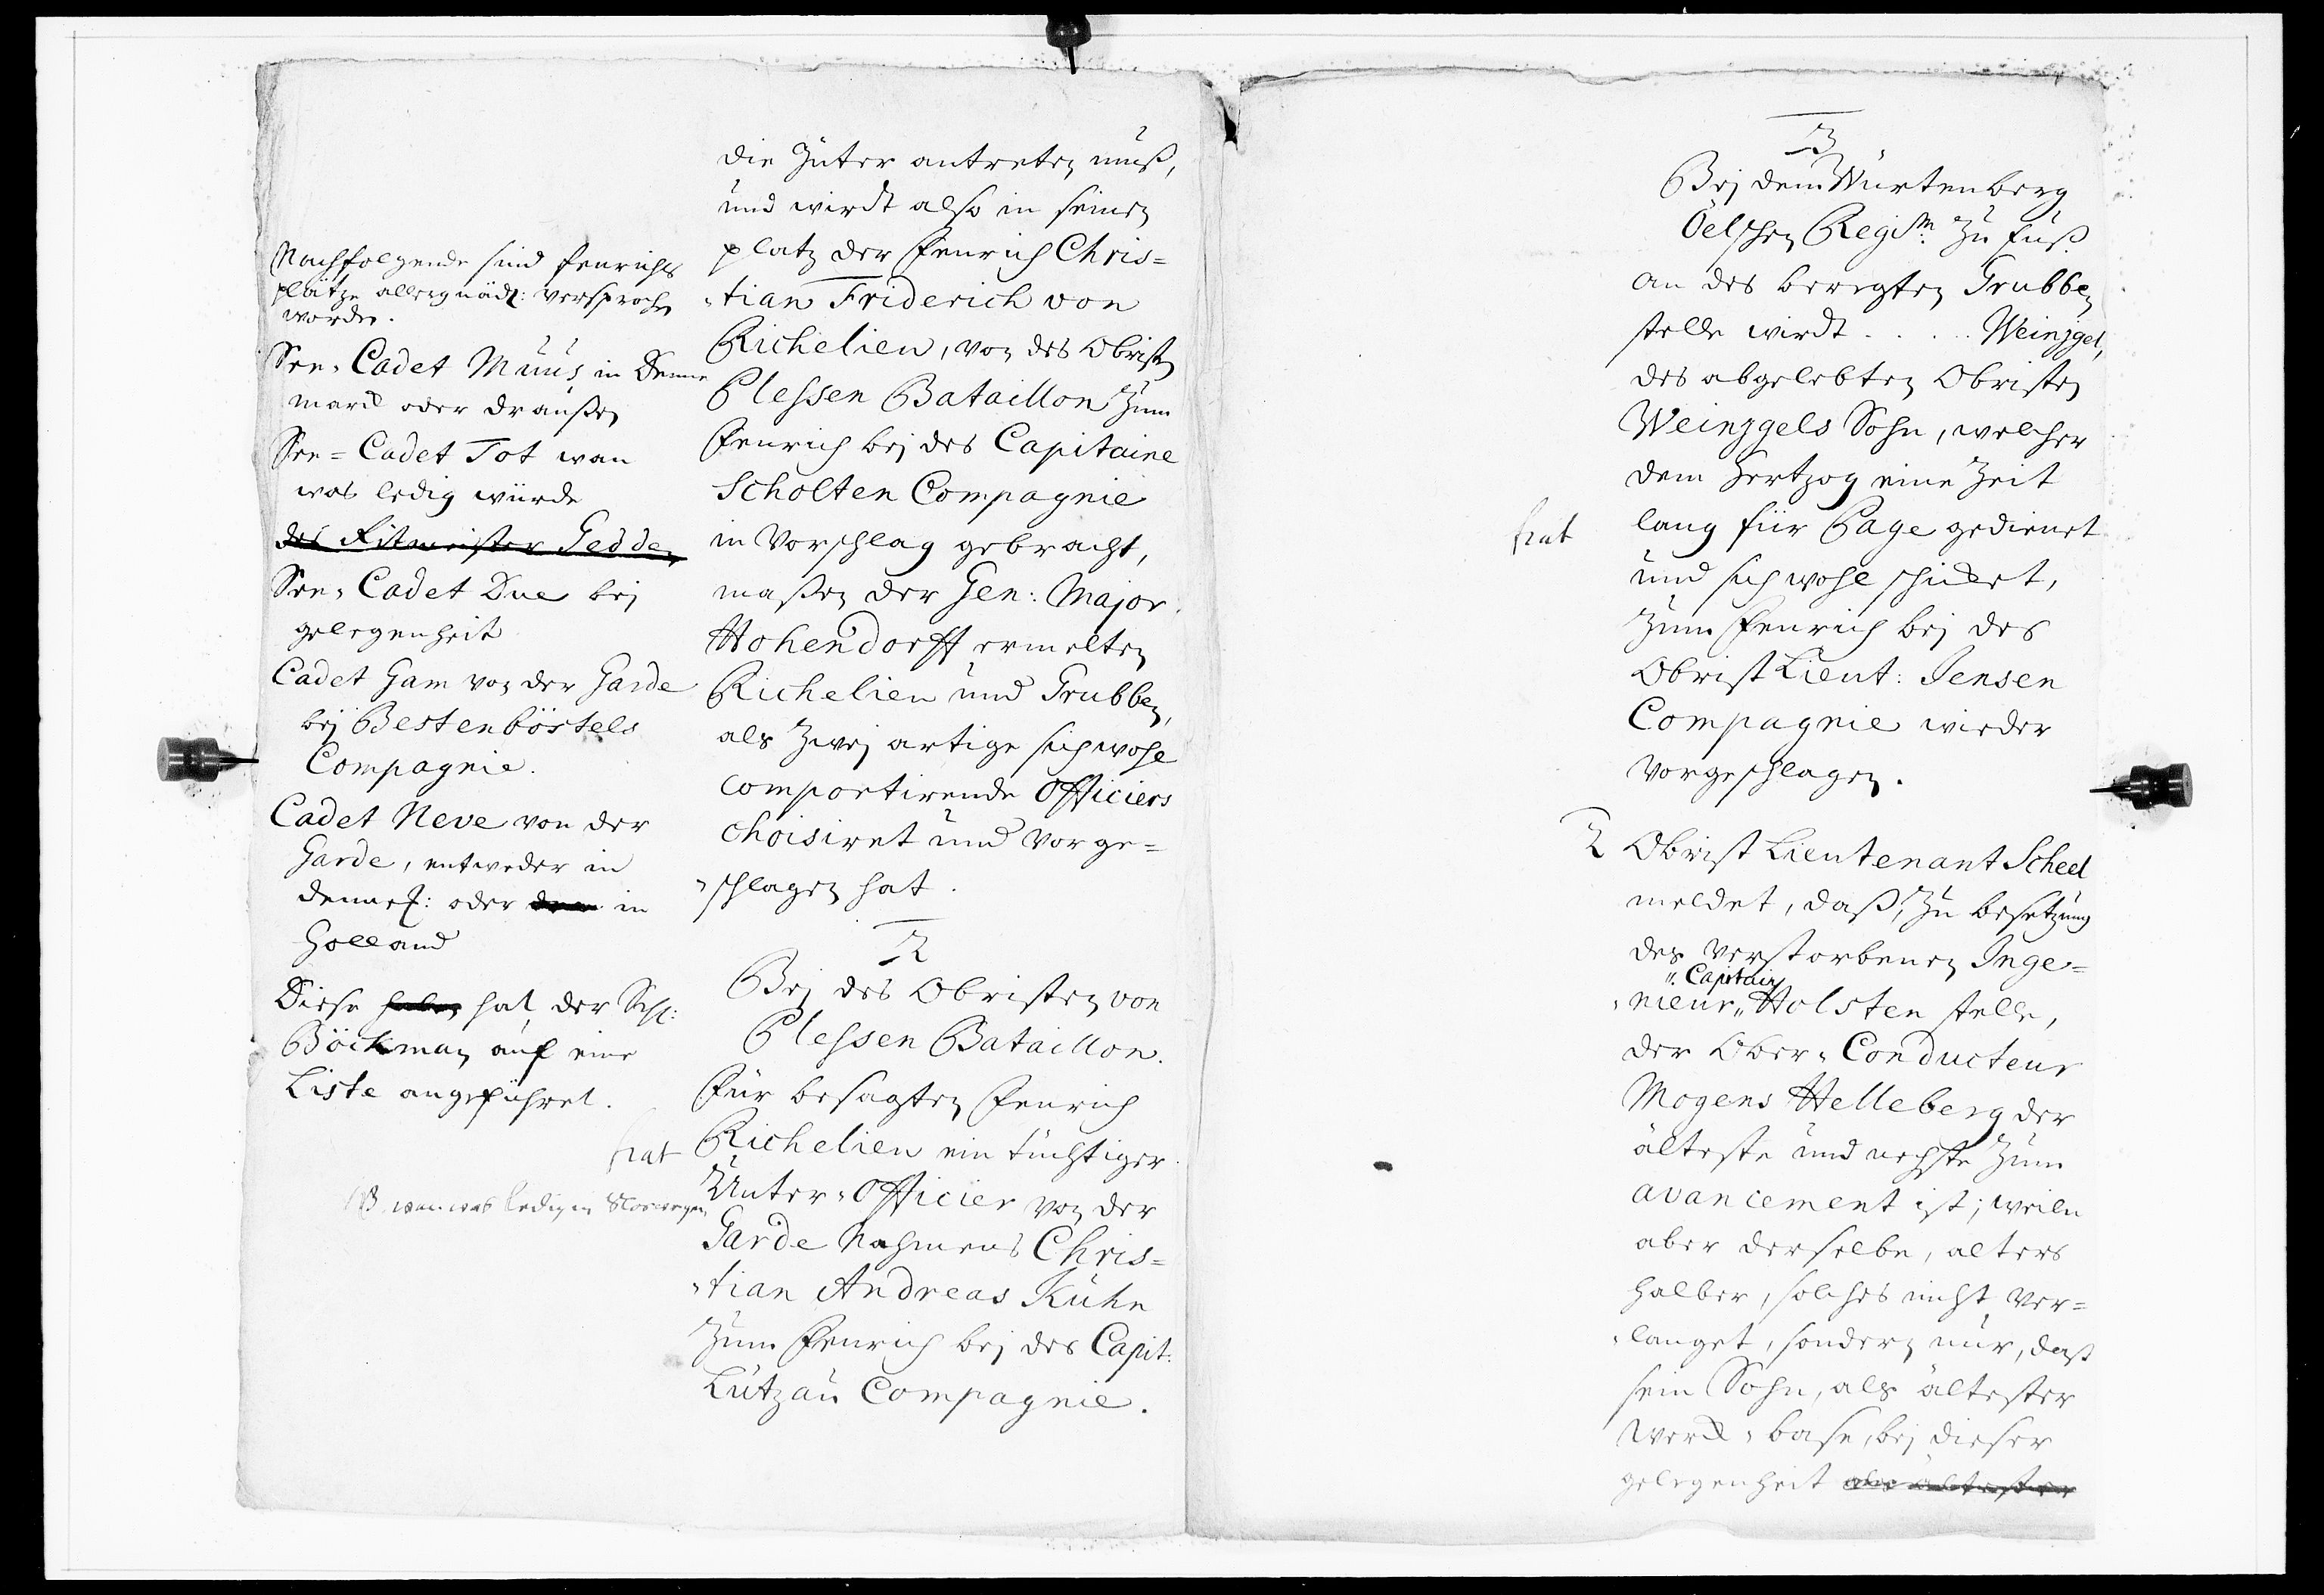 Nachfolgende sind fenrichs
plätze allergnädl: versprochen
worden.
See-Cadet Muus in Denne
marck oder draußen
See=Cadet Tot wan
was ledig würde
des Ritmeister Gedden
See-Cadet Due bej
gelegenheit
Cadet Gam von der Garde
bej Bestenböstels
Compagnie.
Cadet Neve von der
Garde, entweder in
Dennef: oder in
Holland
Diese haben hat der
Böckman auf eine
Liste angeführet.
frat
NB. wan was ledig in Norwegen
die Güter antreten muß,
und wirdt also in seinen
platz der Fenrich Chris=
=tian Friderich von
Richelieu, von des Obristen
Plessen Bataillon zum
Fenrich bej des Capitaine
Scholten Compagnie
in Vorschlag gebracht,
maßen der Gen: Major
Hohendorff ermelten
Richelieu und Grubben,
als zwej artige sich wohl
comportirende Officiers
choisiret und vorge=
=schlagen hat.
2
Bej des Obristen von
Plessen Bataillon.
Für besagten Fenrich
Richelieu ein tüchtiger
Unter-Officier von der
Garde Nahmens Chris=
=tian Andreas Kühn
zum Fenrich bej des Capit:
Lützau Compagnie.
3
Bej dem Würtenberg
Öelschen Regim: zu fuß
an des beregten Grubben
stelle wirdt . . . . Weinzgel,
des abgelebten Obristen
Weinzgels Sohn, welcher
dem Hertzog eine Zeit
frat
lang für Page gedienet
und sich wohl schicket,
zum Fenrich bej des
Obrist Lieut: Jensen
Compagnie wieder
vorgeschlagen.
2 Obrist Lieutenant Scheel
meldet, daß, zu besetzung
des verstorbenen Inge=
" Capitain
=nieur " Holsten stelle,
der Ober-Conducteur
Mogens Helleberg der
älteste und nechste zum
avancement ist; weiln
aber derselbe, alters
halber, solches nicht ver=
=langet, sondern nur, daß
sein Sohn, als ältester
Werck-base, bej dieser
gelegenheit als ältester